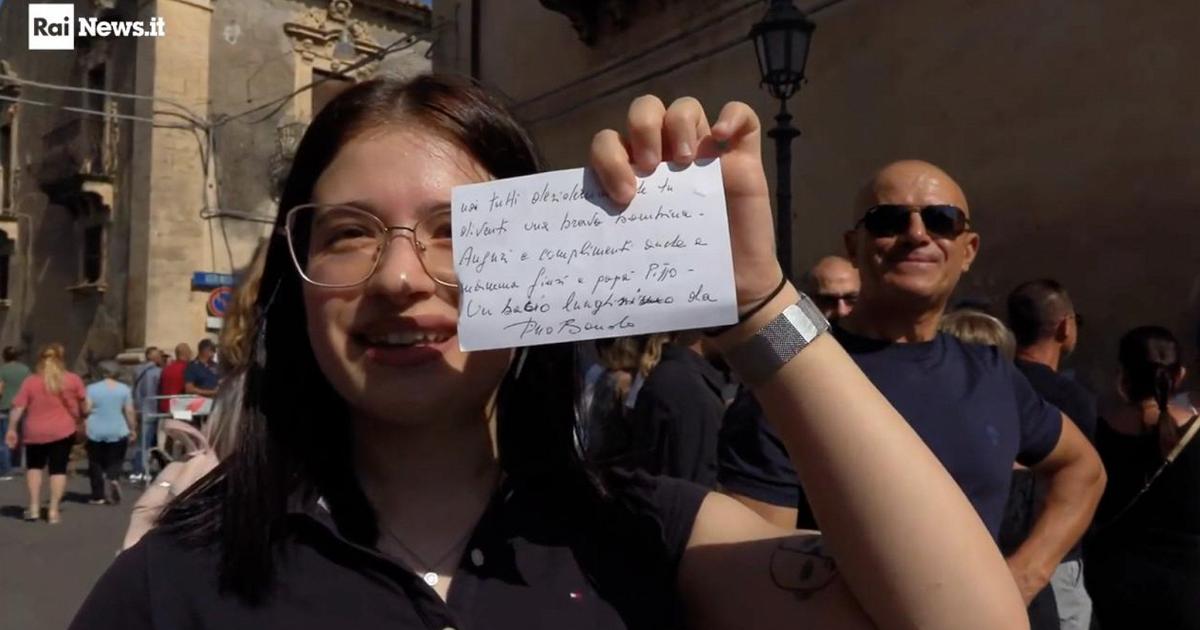 Rai News.it
noi tutti desideriamo che tu
diventi una brava bambina -
Auguri e complimenti anche a
mamma Giusi e papà Pippo -
Un bacio lunghissimo da